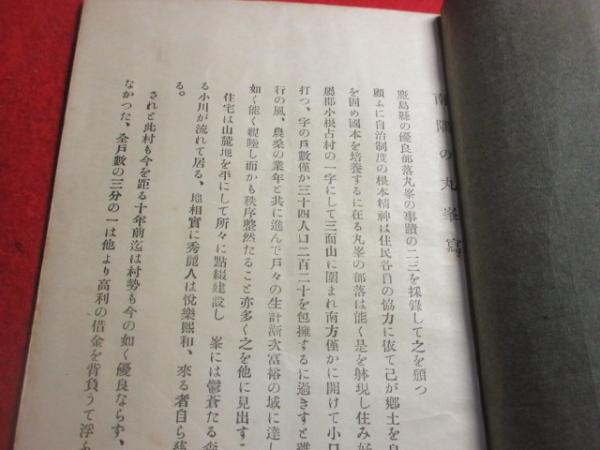 の丸峯
鹿島縣の優良部落丸峯の事蹟の二三を採錄して之を頒つ
顧ふに自治制度の根本精神は住民各自の協力に依て己が鄕土を自
を固め國本を培養するに在る丸峯の部落は能く是を躰現し住み好
郡小根占村の一字にして三面山に圍まれ南方僅かに開けて小口
打つ、字の戶數僅か三十四人口二百二十を包擁するに過きすと雖
行の風、農桑の業年と共に進んで戶々の生計漸次富裕の域に達し
如く能く親睦し而かも秩序整然たること亦多く之を他に見出すこ
住宅は山麓地を平にして所々に點綴建設し 峯には鬱蒼たる森
る小川が流れて居る、地相實に秀麗人は悅樂熙和、來る者自ら
る。
されと此村も今を距る十年前迄は村勢も今の如く優良ならず、
なかつた、全戶數の三分の一は他より高利の借金を背負うて浮ふ